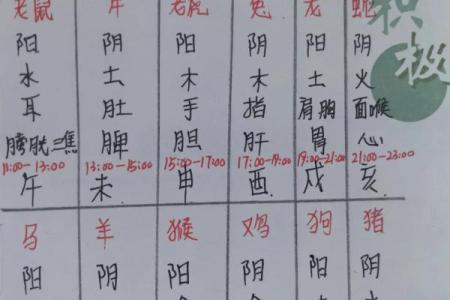 老鼠 牛 老虎 兔 龙 蛇
阳 阴 阳 阴 阳 阴
水 土 木 木 土 火
耳 肚 手 指 肩胸 面喉
膀胱三焦 脾 胆 肝 胃 心
11:00-13:00 13:00-15:00 15:00-17:00 17:00-19:00 19:00-21:00 21:00-23:00
午 未 申 酉 戌 亥
马 羊 猴 鸡 狗 猪
阳 阴 阳 阴 阳 阴
积极